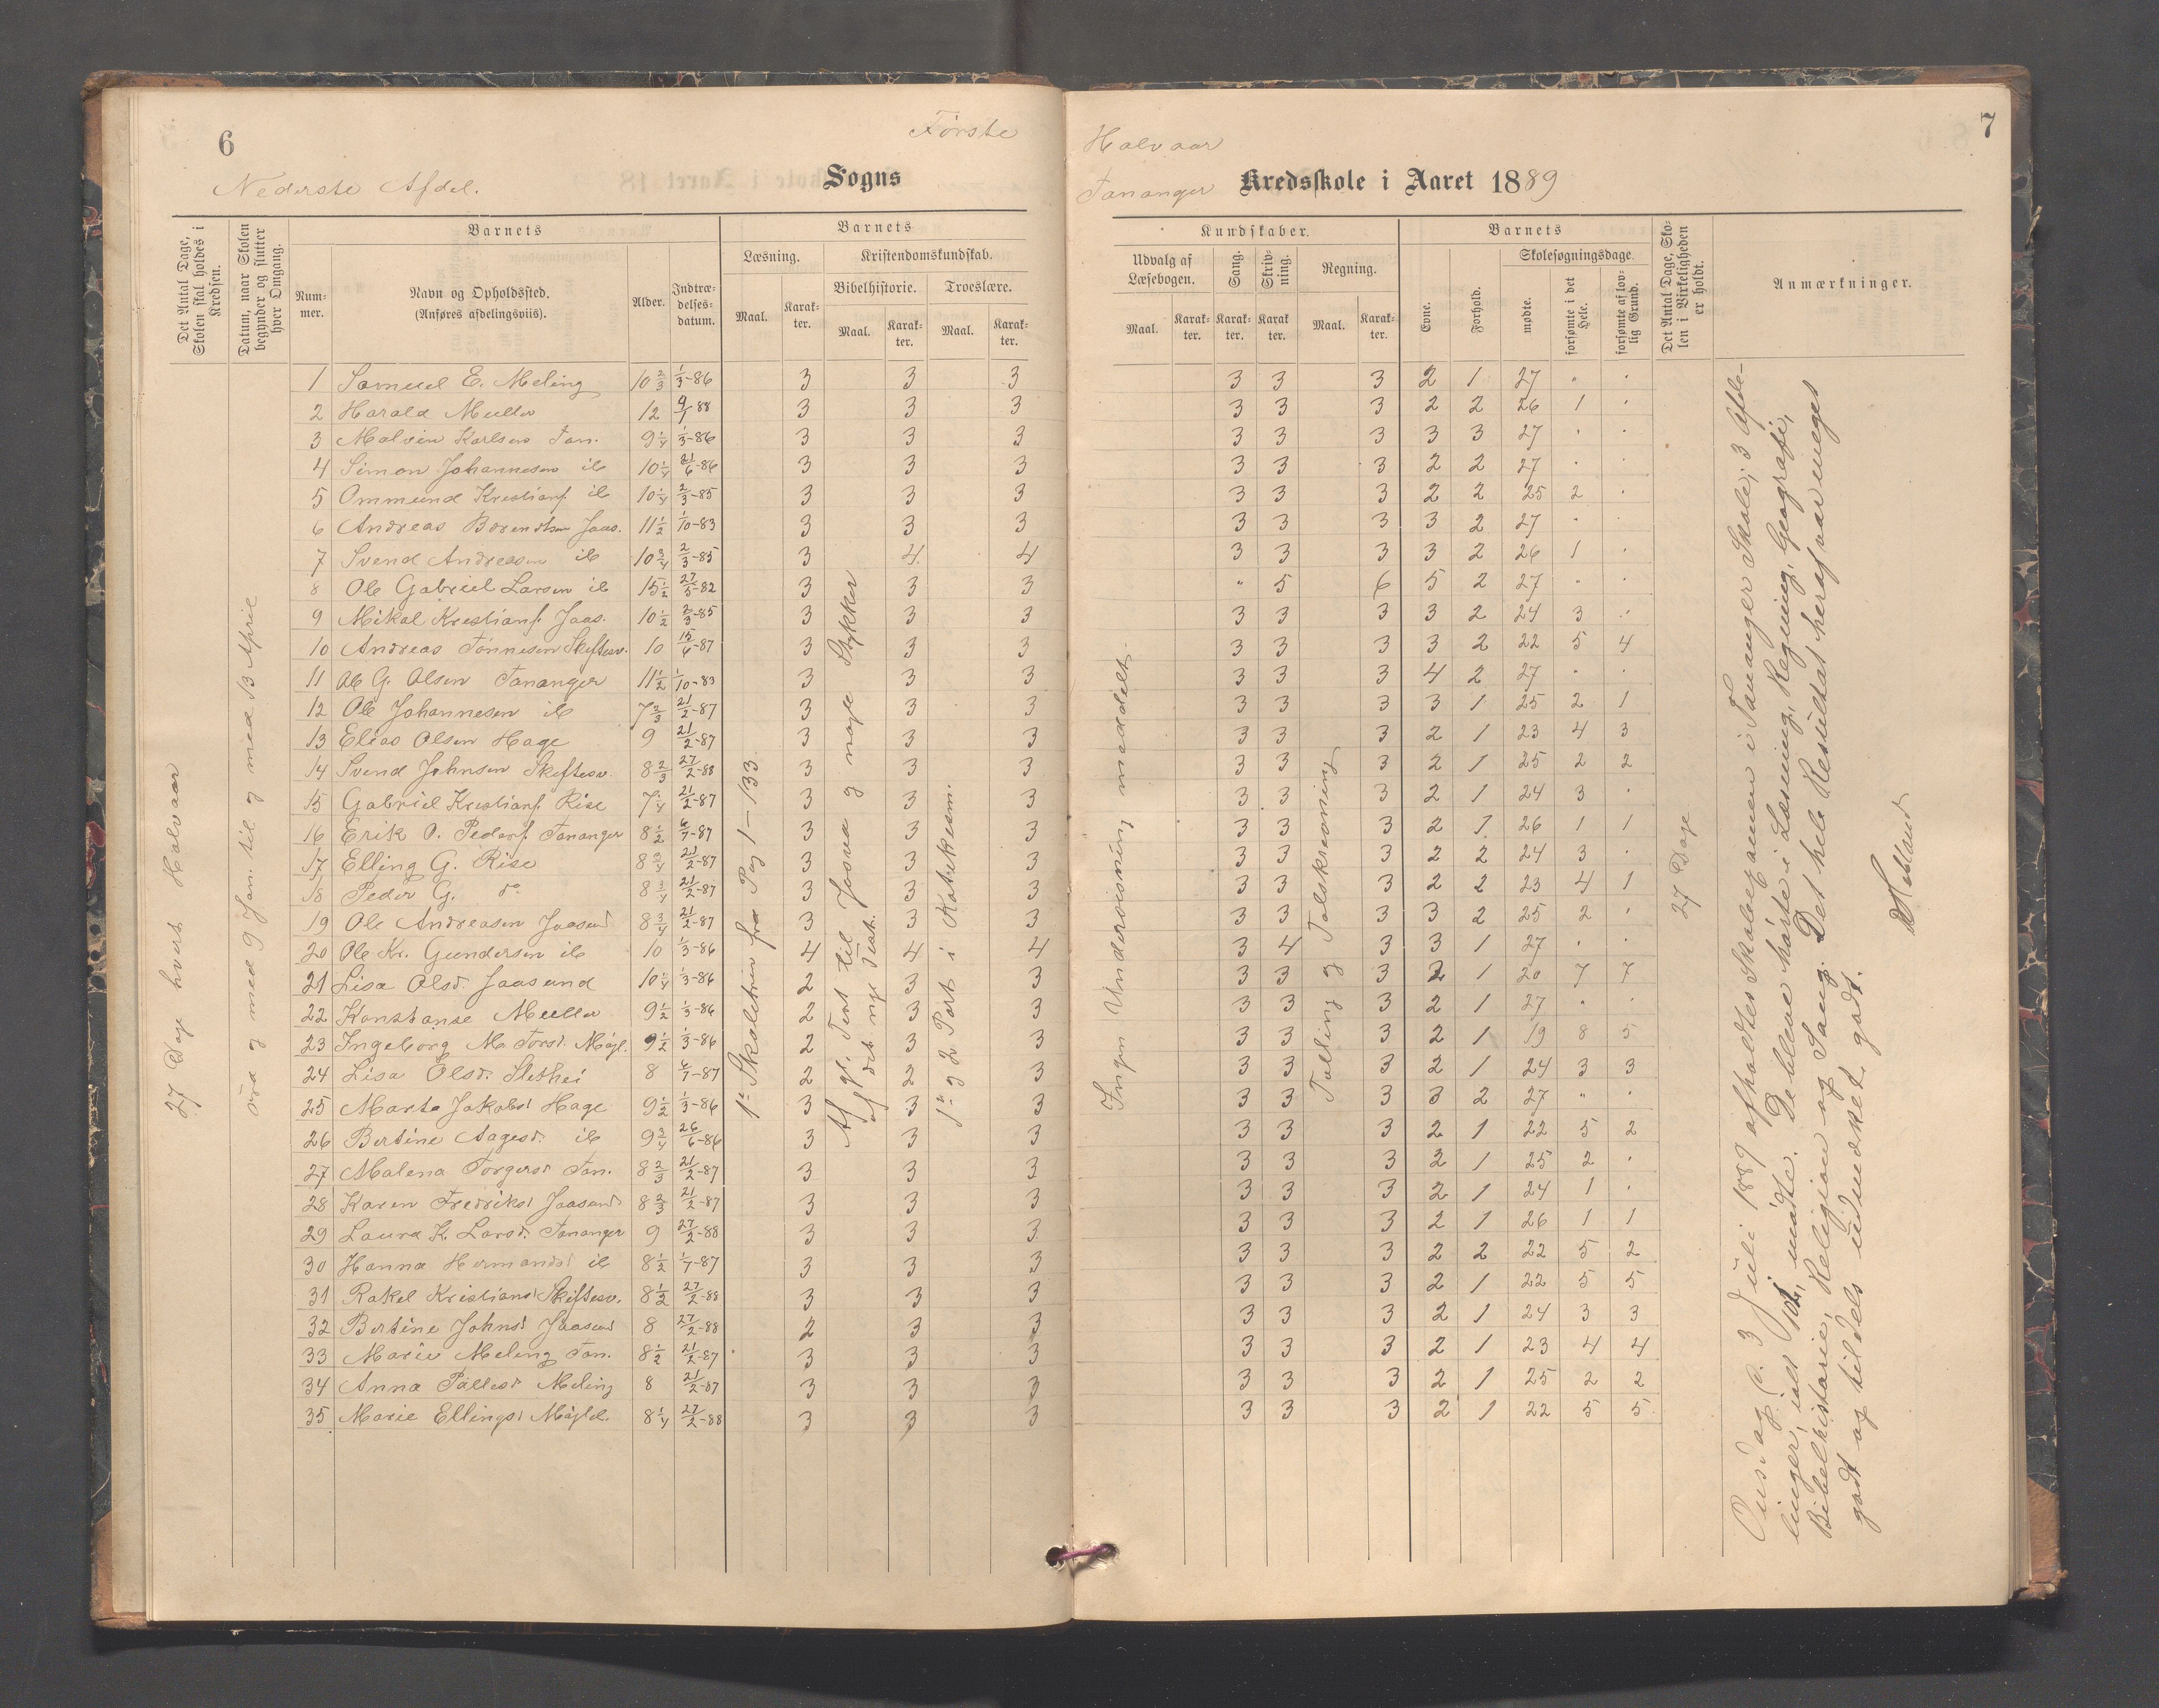 6
Første
Nederste Afdel.
Sogns
Det Antal Dage, Skolen skal holdes i Kredsen.
Datum, naar Skolen begynder og slutter hver Omgang.
Barnets
Barnets
Num-mer.
Navn og Opholdssted.
(Anføres afdelingsviis).
Alder.
Indtræ-delses-datum.
Læsning.
Kristendomskundskab.
Bibelhistorie.
Troeslære.
Maal.
Karak-ter.
Maal.
Karak-ter.
Maal.
Karak-ter.
27 Dage hvert Halvaar
fra og med 9 Jan. til og med 13 April
1 Samuel E. Meling 10 2/3 1/3-86 3 3 3
2 Harald Muller 12 9/1 88 3 3 3
3 Malvin Karlsen Tan. 9 1/4 1/3-86 3 3 3
4 Simon Johannesen ib 10 1/4 21/6-86 3 3 3
5 Ommund Kristians. ib 10 1/4 2/3-85 3 3 3
6 Andreas Berentsen Jaas. 11 1/2 1/10-83 3 3 3
7 Svend Andreasen ib 10 3/4 2/3-85 3 4 4
8 Ole Gabriel Larsen ib 15 1/2 27/5-82 3 3 3
9 Mikal Kristians. Jaas. 10 1/2 2/3-85 3 3 3
10 Andreas Tønnesen Skiftesv. 10 15/6-87 3 3 3
11 Ole G. Olsen Tananger 11 1/2 1/10-83 3 3 3
12 Ole Johannesen ib 7 2/3 21/2-87 3 3 3
13 Elias Olsen Hage 9 21/2-87 3 3 3
14 Svend Johnsen Skiftesv. 8 2/3 27/2-88 3 3 3
15 Gabriel Kristians. Rise 7 1/4 21/2-87 3 3 3
16 Erik O. Peders. Tananger 8 1/2 6/7-87 3 3 3
17 Elling G. Rise 8 3/4 21/2-87 3 3 3
18 Peder G. do 8 3/4 21/2-87 3 3 3
19 Ole Andreasen Jaasund 8 3/4 21/2-87 3 3 3
20 Ole Kr. Gundersen ib 10 1/3-86 4 4 4
21 Lisa Olsd. Jaasund 10 1/4 1/3-86 2 3 3
22 Konstanse Muller 9 1/2 1/3-86 2 3 3
23 Ingeborg M. Torsd. Mygl. 9 1/2 1/3-86 2 3 3
24 Lisa Olsd. Slethei 8 6/7-87 2 2 3
25 Marta Jakobsd Hage 9 1/2 1/3-86 3 3 3
26 Bertine Aagesd. ib 9 3/4 26/6-86 3 3 3
27 Malena Torgersd Tan. 8 2/3 21/2-87 3 3 3
28 Karen Fredriksd Jaasund 8 2/3 21/2-87 3 3 3
29 Laura K. Larsd. Tananger 9 27/2-88 3 3 3
30 Hanna Hermandsd ib 8 1/2 1/7-87 3 3 3
31 Rakel Kristiansd Skiftesv. 8 1/2 27/2-88 3 3 3
32 Bertine Johnsd Jaasund 8 27/2-88 2 3 3
33 Marie Meling Tan. 8 1/2 21/2-87 3 3 3
34 Anna Pallesd Meling 8 21/2-87 3 3 3
35 Marie Ellingsd Mygl. 8 1/4 27/2-88 3 3 3
1e Skoletrin fra Pag 1-133
Af gl. Test til Josva og nogle Stykker
af det nye Test.
1e og 2 Part i Katekesm.
7
Halvaar
Tananger
Kredsskole i Aaret 1889
Kundskaber.
Barnets
Udvalg af Læsebogen.
Sang.
Skriv-ning.
Regning.
Maal.
Karak-ter.
Karak-ter.
Karak-ter.
Maal.
Karak-ter.
Evne.
Forhold.
Skolesøgningsdage.
mødte.
forsømte i det Hele.
forsømte af lov-lig Grund.
Det Antal Dage, Sko-len i Virkeligheden er holdt.
Anmærkninger.
3 3 3 2 1 27 " "
3 3 3 2 2 26 1 "
3 3 3 3 3 27 " "
3 3 3 2 2 27 " "
3 3 3 2 2 25 2 "
3 3 3 3 2 27 " "
3 3 3 3 2 26 1 "
" 5 6 5 2 27 " "
3 3 3 3 2 24 3 "
3 3 3 3 2 22 5 4
3 3 3 4 2 27 " "
3 3 3 3 1 25 2 1
3 3 3 2 1 23 4 3
3 3 3 2 1 25 2 2
3 3 3 2 1 24 3 "
3 3 3 2 1 26 1 1
3 3 3 2 2 24 3 "
3 3 3 2 2 23 4 1
3 3 3 3 2 25 2 "
3 4 3 3 1 27 " "
3 3 3 2 1 20 7 7
3 3 3 2 1 27 " "
3 3 3 2 1 19 8 5
3 3 3 2 1 24 3 3
3 3 3 3 2 27 " "
3 3 3 2 1 22 5 2
3 3 3 2 1 25 2 "
3 3 3 2 1 24 1 "
3 3 3 2 1 26 1 1
3 3 3 2 2 22 5 2
3 3 3 2 1 22 5 5
3 3 3 2 1 24 3 3
3 3 3 2 1 23 4 4
3 3 3 2 1 25 2 2
3 3 3 2 1 22 5 5
Ingen Undervisning meddelt.
Tælling og Talskrivning
27 Dage
Onsdag d. 3 Juli 1889 afholdtes Skoleexamen i Tananger Skole; 3 Afde-
linger, ialt 101, mødte. De bleve hørte i Læsning, Regning, Geografi,
Bibelhistorie, Religion og Sang. Det hele Resultat heraf var meget
godt og tildels udmerket godt.